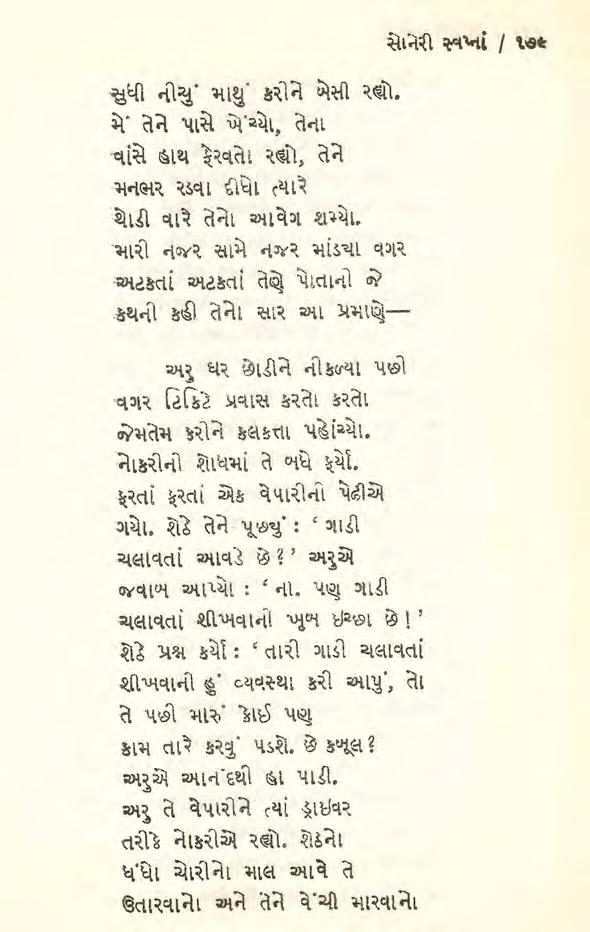 સોનેરી સ્વપ્નાં / ૧૭૯
સુધી નીચું માથું કરીને બેસી રહ્યો.
મેં તેને પાસે ખેંચ્યો, તેના
વાંસે હાથ ફેરવતો રહ્યો, તેને
મનભર રડવા દીધો ત્યારે
થોડી વારે તેનો આવેગ શમ્યો.
મારી નજર સામે નજર માંડયા વગર
અટકતાં અટકતાં તેણે પોતાની જે
કથની કહી તેનો સાર આ પ્રમાણે—
અરુ ઘર છોડીને નીકળ્યા પછી
વગર ટિકિટે પ્રવાસ કરતો કરતો
જેમતેમ કરીને કલકત્તા પહોંચ્યો.
નોકરીની શોધમાં તે બધે ફર્યો.
ફરતાં ફરતાં એક વેપારીની પેઢીએ
ગયો. શેઠે તેને પૂછ્યું : ‘ ગાડી
ચલાવતાં આવડે છે?’ અરુએ
જવાબ આપ્યો : ‘ ના. પણ ગાડી
ચલાવતાં શીખવાની ખૂબ ઇચ્છા છે!’
શેઠે પ્રશ્ન કર્યો : ‘તારી ગાડી ચલાવતાં
શીખવાની હું વ્યવસ્થા કરી આપું, તો
તે પછી મારું કોઈ પણ
કામ તારે કરવું પડશે. છે કબૂલ?
અરુએ આનંદથી હા પાડી.
અરુ તે વેપારીને ત્યાં ડ્રાઇવર
તરીકે નોકરીએ રહ્યો. શેઠનો
ધંધો ચોરીનો માલ આવે તે
ઉતારવાનો અને તેને વેંચી મારવાનો